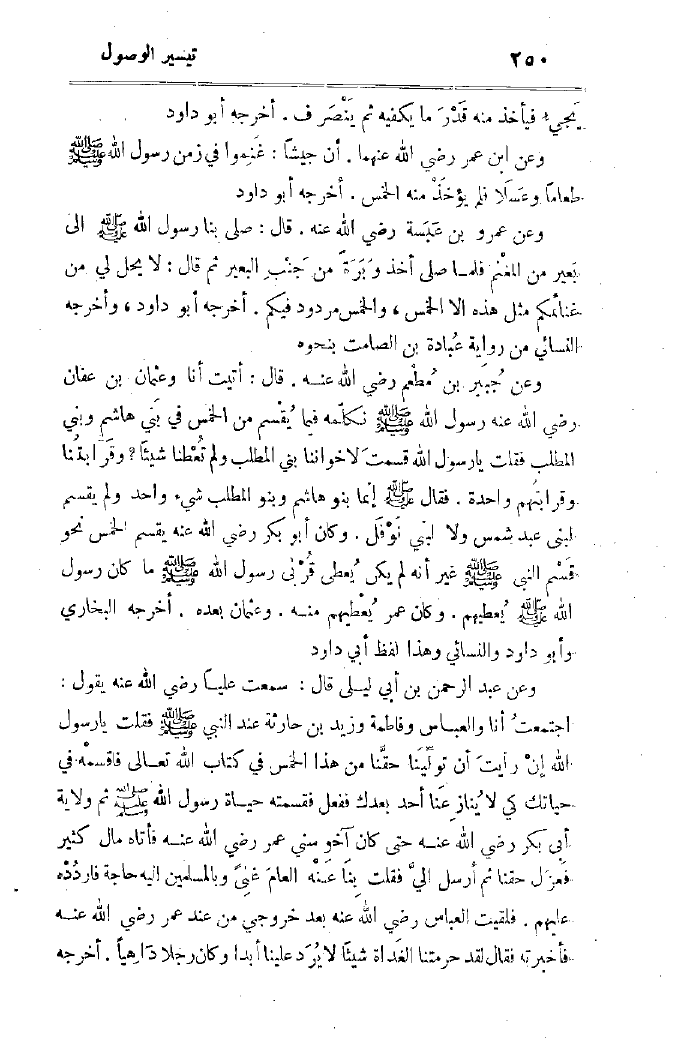 ٢٥٠ تيسير الوصول
يَجيء فيأخذ منه قَدْرَ ما يكفيه ثم يَنْصَرِف . أخرجه أبو داود
وعن ابن عمر رضي الله عنهما . أن جيشاً : غَنِموا في زمن رسول الله ﷺ
طعاماً وعَسَلًا فلم يؤخَذْ منه الخمس . أخرجه أبو داود
وعن عمرو بن عَبَسَة رضي الله عنه . قال : صلى بنا رسول الله ﷺ الى
بَعير من المغْنَم فلمـا صلى أخذ وَبَرَةً من جَنْبِ البعير ثم قال : لا يحل لي من
غنائمكم مثل هذه الا الخمس ، والخمس مردود فيكم . أخرجه أبو داود ، وأخرجه
النسائي من رواية عُبادة بن الصامت بنحوه
وعن جُبَير بن مُطعِم رضي الله عنـه . قال : أتيت أنا وعثمان بن عفان
رضي الله عنه رسول الله ﷺ نكلّمه فيما يُقْسم من الخمس في بَني هاشم وبني
المطلب فقلت يارسول الله قسمتَ لاخواننا بني المطلب ولم تُعْطنا شيئاً ? وقَرَابتُنا
وقرابتُهم واحدة . فقال ﷺ إنما بنو هاشم وبنو المطلب شيء واحد ولم يقسم
لبني عبد شمس ولا لبني نَوْفَل . وكان أبو بكر رضي الله عنه يقسم الخمس نحو
قَسْم النبي ﷺ غير أنه لم يكن يُعطى قُرْبى رسول الله ﷺ ما كان رسول
الله ﷺ يُعطيهم . وكان عمر يُعْطيهم منـه . وعثمان بعده . أخرجه البخاري
وأبو داود والنسائي وهذا لفظ أبي داود
وعن عبد الرحمن بن أبي ليـلى قال : سمعت عليـاً رضي الله عنه يقول :
اجتمعتُ أنا والعبـاس وفاطمة وزيد بن حارثة عند النبي ﷺ فقلت يارسول
الله إنْ رأيتَ أن توَلِّيَنا حقَّنا من هذا الخمس في كتاب الله تعـالى فاقسمْه في
حياتك كي لا يُنازِعَنا أحد بعدك ففعل فقسمته حيـاة رسول الله ﷺ ثم ولاية
أبي بكر رضي الله عنـه حتى كان آخر سني عمر رضي الله عنـه فأتاه مال كثير
فعزَل حقنا ثم أرسل اليَّ فقلت بِنا عَنْه العامَ غنىً وبالمسلمين اليه حاجة فاردُدْه
عليهم . فلقيت العباس رضي الله عنه بعد خروجي من عند عمر رضي الله عنـه
فأخبرته فقال لقد حرمتنا الغَداة شيئاً لا يُرَد علينا أبدا وكان رجلا دَاهياً . أخرجه